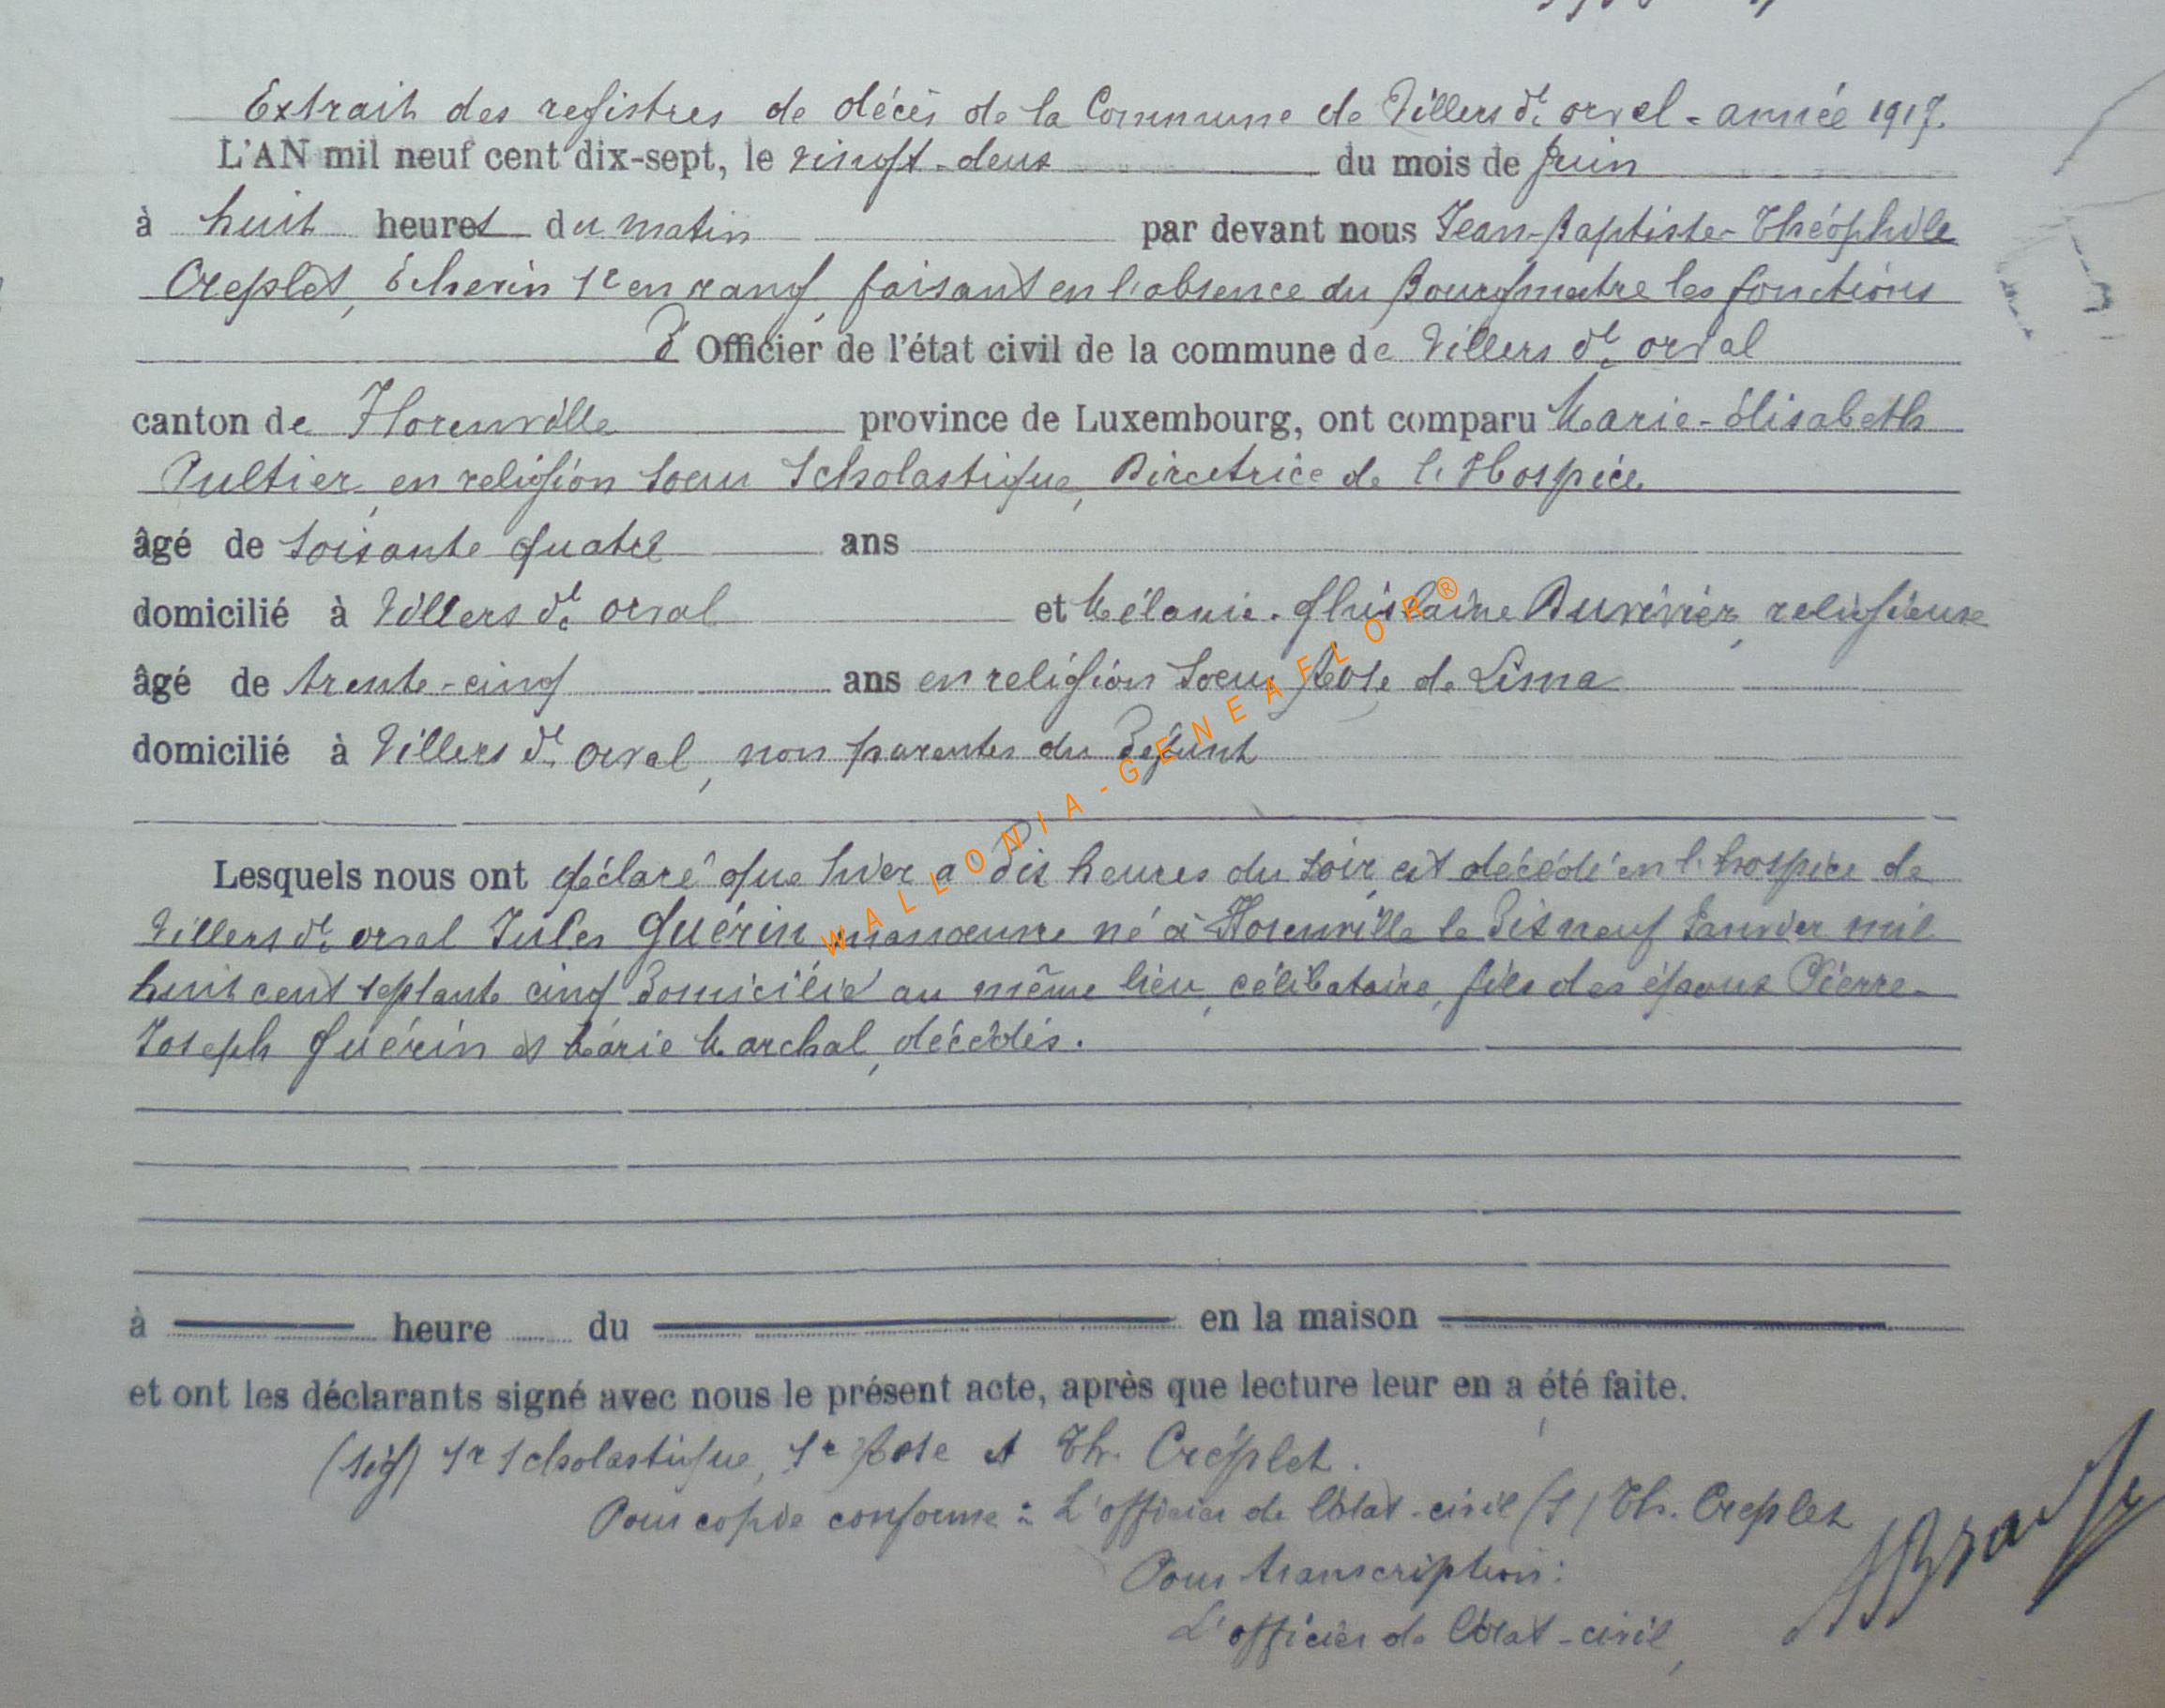 Extrait des registres de décès de la Commune de Villers dt orval - année 1917.
L'AN mil neuf cent dix-sept, le vingt-deux du mois de Juin
à huit heures du matin par devant nous Jean-Baptiste-Théophile
Creplet, Échevin 1r en rang, faisant en l'absence du Bourgmestre les fonctions
d'Officier de l'état civil de la commune de Villers dt orval
canton de Florenville province de Luxembourg, ont comparu Marie-Élisabeth
Pultier, en religion Soeur Scholastique, Directrice de l'Hospice
âgé de soixante quatre ans
domicilié à Villers dt orval et Mélanie-Ghislaine Duvivier, religieuse
âgé de trente-cinq ans en religion Soeur Rose de Lima
domicilié à Villers dt orval, non parentes du Défunt
Lesquels nous ont déclaré que hier à dix heures du soir, est décédé en l'hospice de
Villers dt orval Jules Guérin manoeuvre né à Florenville le Dix neuf Janvier mil
huit cent septante cinq Domicilié au même lieu, célibataire, fils des époux Pierre-
Joseph Guérin et Marie Marchal, décédés.
à heure du en la maison
et ont les déclarants signé avec nous le présent acte, après que lecture leur en a été faite.
(sig) Sr Scholastique, Sr Rose et Th. Créplet.
Pour copie conforme : L'officier de l'état-civil (s) Th. Creplet
Pour transcription:
L'officier de l'état-civil,
WALLONIA-GENEAFLOR®